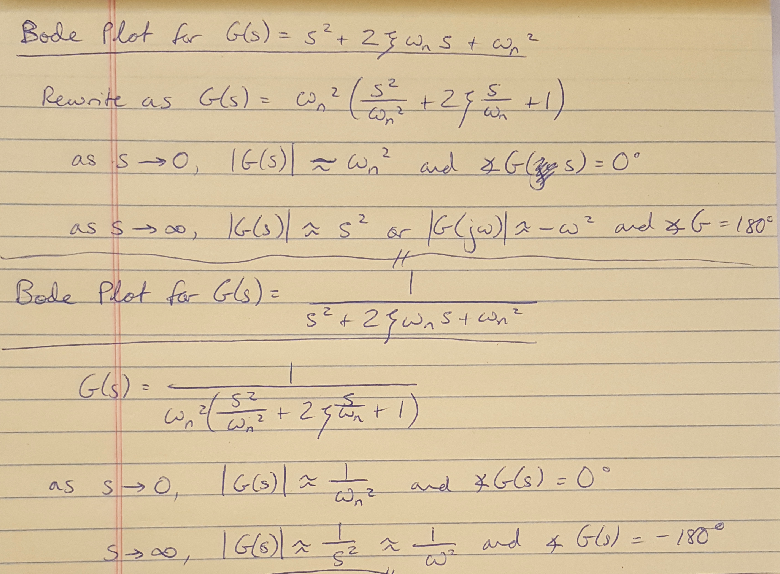 Bode Plot for G(s) = s² + 2ξωₙs + ωₙ²
Rewrite as G(s) = ωₙ² (s²/ωₙ² + 2ξ s/ωₙ + 1)
as s → 0, |G(s)| ≈ ωₙ² and ∡G(s) = 0°
as s → ∞, |G(s)| ≈ s² or |G(jω)| ≈ -ω² and ∡G = 180°
Bode Plot for G(s) = 1/(s² + 2ξωₙs + ωₙ²)
G(s) = 1/(ωₙ²(s²/ωₙ² + 2ξ s/ωₙ + 1))
as s → 0, |G(s)| ≈ 1/ωₙ² and ∡G(s) = 0°
s → ∞, |G(s)| ≈ 1/s² ≈ 1/ω² and ∡G(s) = -180°